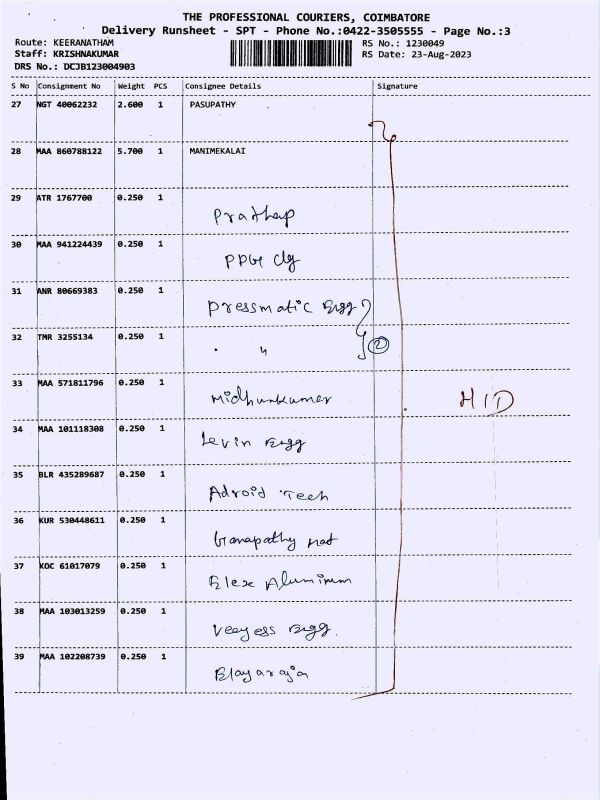 THE PROFESSIONAL COURIERS, COIMBATORE
Delivery Runsheet - SPT - Phone No.:0422-3505555 - Page No.:3
Route: KEERANATHAM RS No.: 1230049
Staff: KRISHNAKUMAR RS Date: 23-Aug-2023
DRS No.: DCJB123004903
S No Consignment No Weight PCS Consignee Details Signature
27 NGT 40062232 2.600 1 PASUPATHY
28 MAA 860788122 5.700 1 MANIMEKALAI
29 ATR 1767700 0.250 1 Prathap
30 MAA 941224439 0.250 1 PPG clg
31 ANR 80669383 0.250 1 Pressmatic Engg
32 TMR 3255134 0.250 1 " 2
33 MAA 571811796 0.250 1 Midhunkumar HID
34 MAA 101118308 0.250 1 Levin Engg
35 BLR 435289687 0.250 1 Adroid Tech
36 KUR 530448611 0.250 1 Ganapathy
37 KOC 61017079 0.250 1 Elex Aluminum
38 MAA 103013259 0.250 1 Veeyess Engg.
39 MAA 102208739 0.250 1 Elayaraja